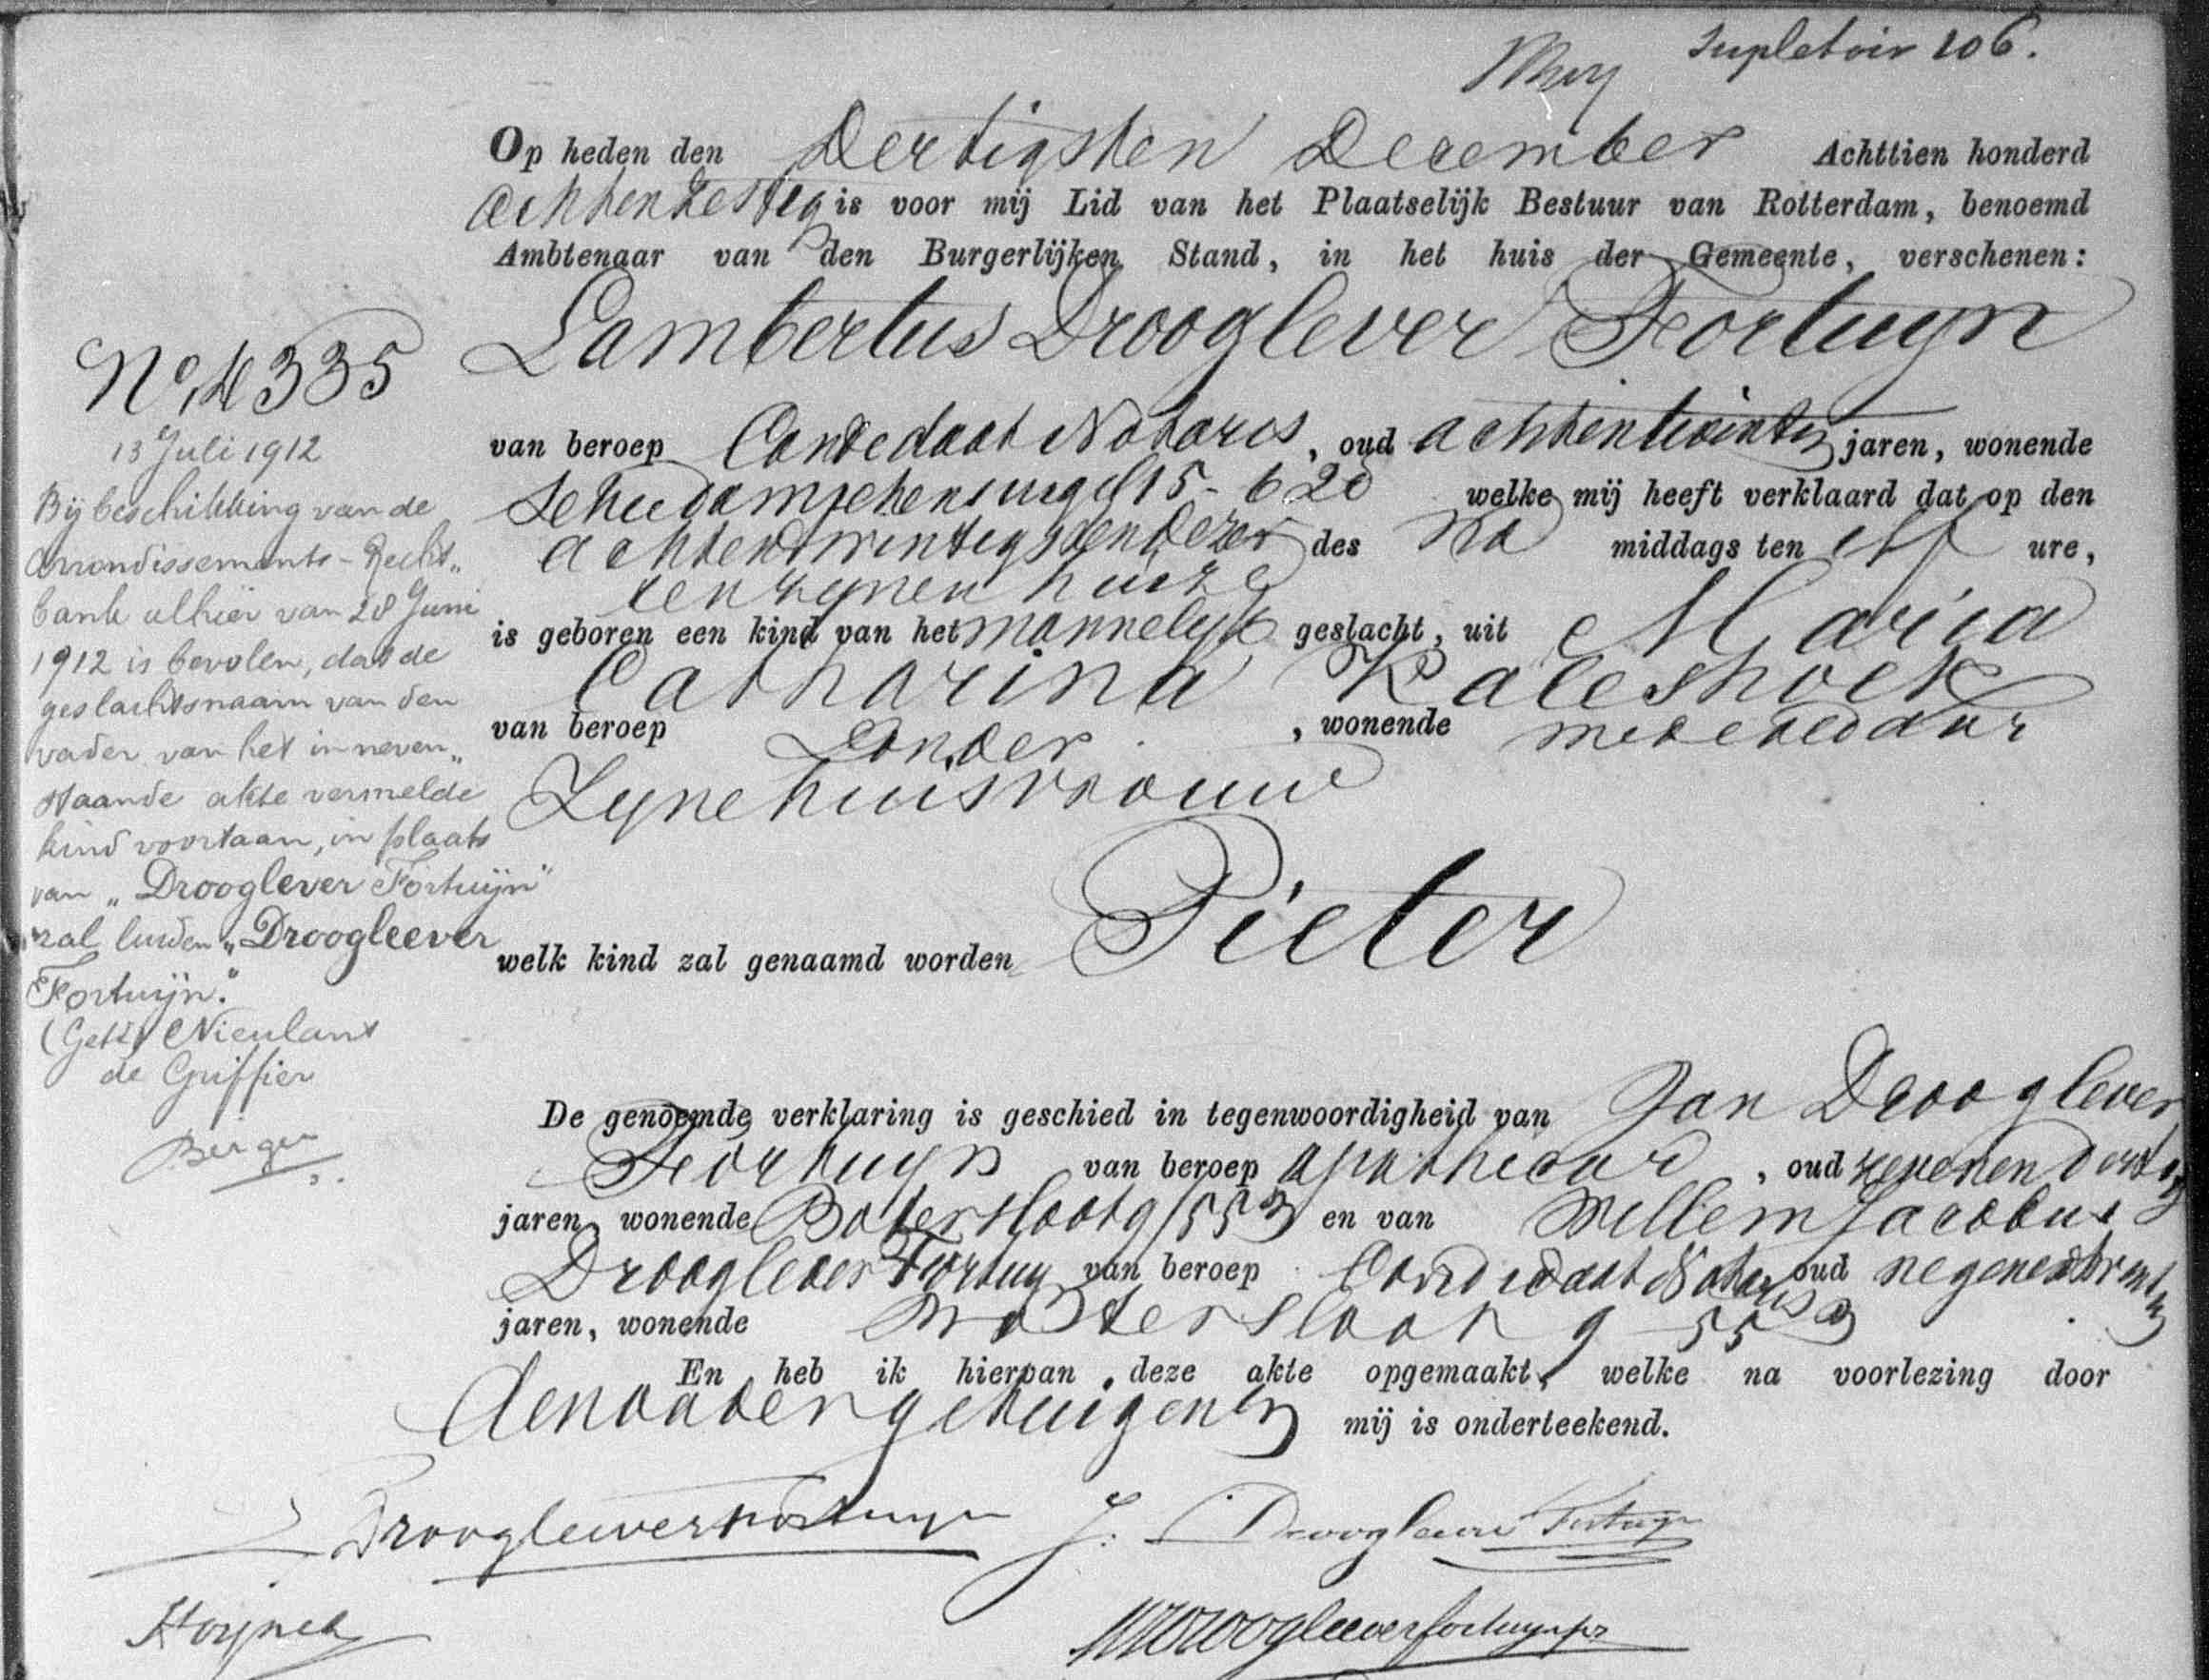 Supletoir 106.
Op heden den Dertigsten December Achttien honderd
achtenzestig is voor mij Lid van het Plaatselijk Bestuur van Rotterdam, benoemd
Ambtenaar van den Burgerlijken Stand, in het huis der Gemeente, verschenen:
Lambertus Drooglever Fortuyn
van beroep Candidaat Notaris, oud achtentwintig jaren, wonende
Schiedamschensingel 15-620 welke mij heeft verklaard dat op den
achtentwintigsten dezer des na middags ten elf ure,
ten zynen huize
is geboren een kind van het mannelyk geslacht, uit Maria
Catharina Kaleshoek
van beroep zonder, wonende mede aldaar
Zyne huisvrouw
welk kind zal genaamd worden Pieter
De genoemde verklaring is geschied in tegenwoordigheid van Jan Drooglever
Fortuyn van beroep apothecar, oud zevenendertig
jaren, wonende Botersloot g 553 en van Willem Jacobus
Drooglever Fortuyn van beroep Candidaat Notaris oud negenentwintig
jaren, wonende Botersloot g 553
En heb ik hiervan deze akte opgemaakt, welke na voorlezing door
den vader getuigen en mij is onderteekend.
L Droogleeverfortuyn J. Droogleever Fortuyn
Hoynck WJDroogleeverfortuyn
No. 4335
13 Juli 1912
Bij beschikking van de
Arrondissements-Recht„
bank alhier van 28 Juni
1912 is bevolen, dat de
geslachtsnaam van den
vader van het in neven„
staande akte vermelde
kind voortaan, in plaats
van „Drooglever Fortuijn"
zal luiden „Droogleever
Fortuijn."
(Get.) Nieulant
de Griffier
Berger